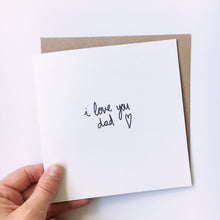 i love you
dad ♡